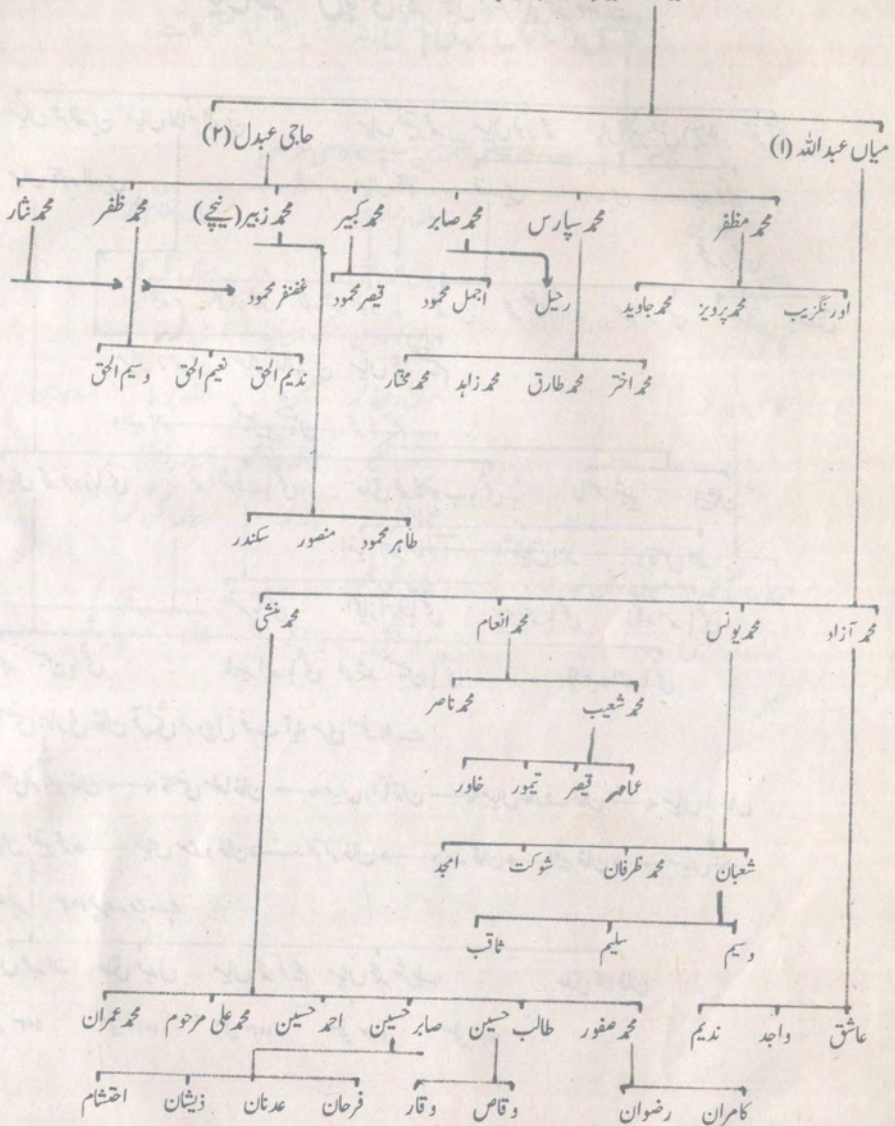 میاں عبداللہ (۱) حاجی عبدل (۲)
محمد مظفر محمد سپارس محمد صابر محمد کبیر محمد زبیر (نیچے) محمد ظفر محمد نثار
اورنگزیب محمد پرویز محمد جاوید رحیل اجمل محمود قیصر محمود غضنفر محمود
محمد اختر محمد طارق محمد زاہد محمد مختار ندیم الحق نعیم الحق وسیم الحق
طاہر محمود منصور سکندر
محمد آزاد محمد یونس محمد انعام محمد منشی
محمد شعیب محمد ناصر
عاصم قیصر تیمور خاور
شعبان محمد ظرفان شوکت امجد
وسیم سلیم ثاقب
عاشق واجد ندیم محمد صفور طالب حسین صابر حسین احمد حسین محمد علی مرحوم محمد عمران
کامران رضوان وقاص وقار فرحان عدنان ذیشان احتشام